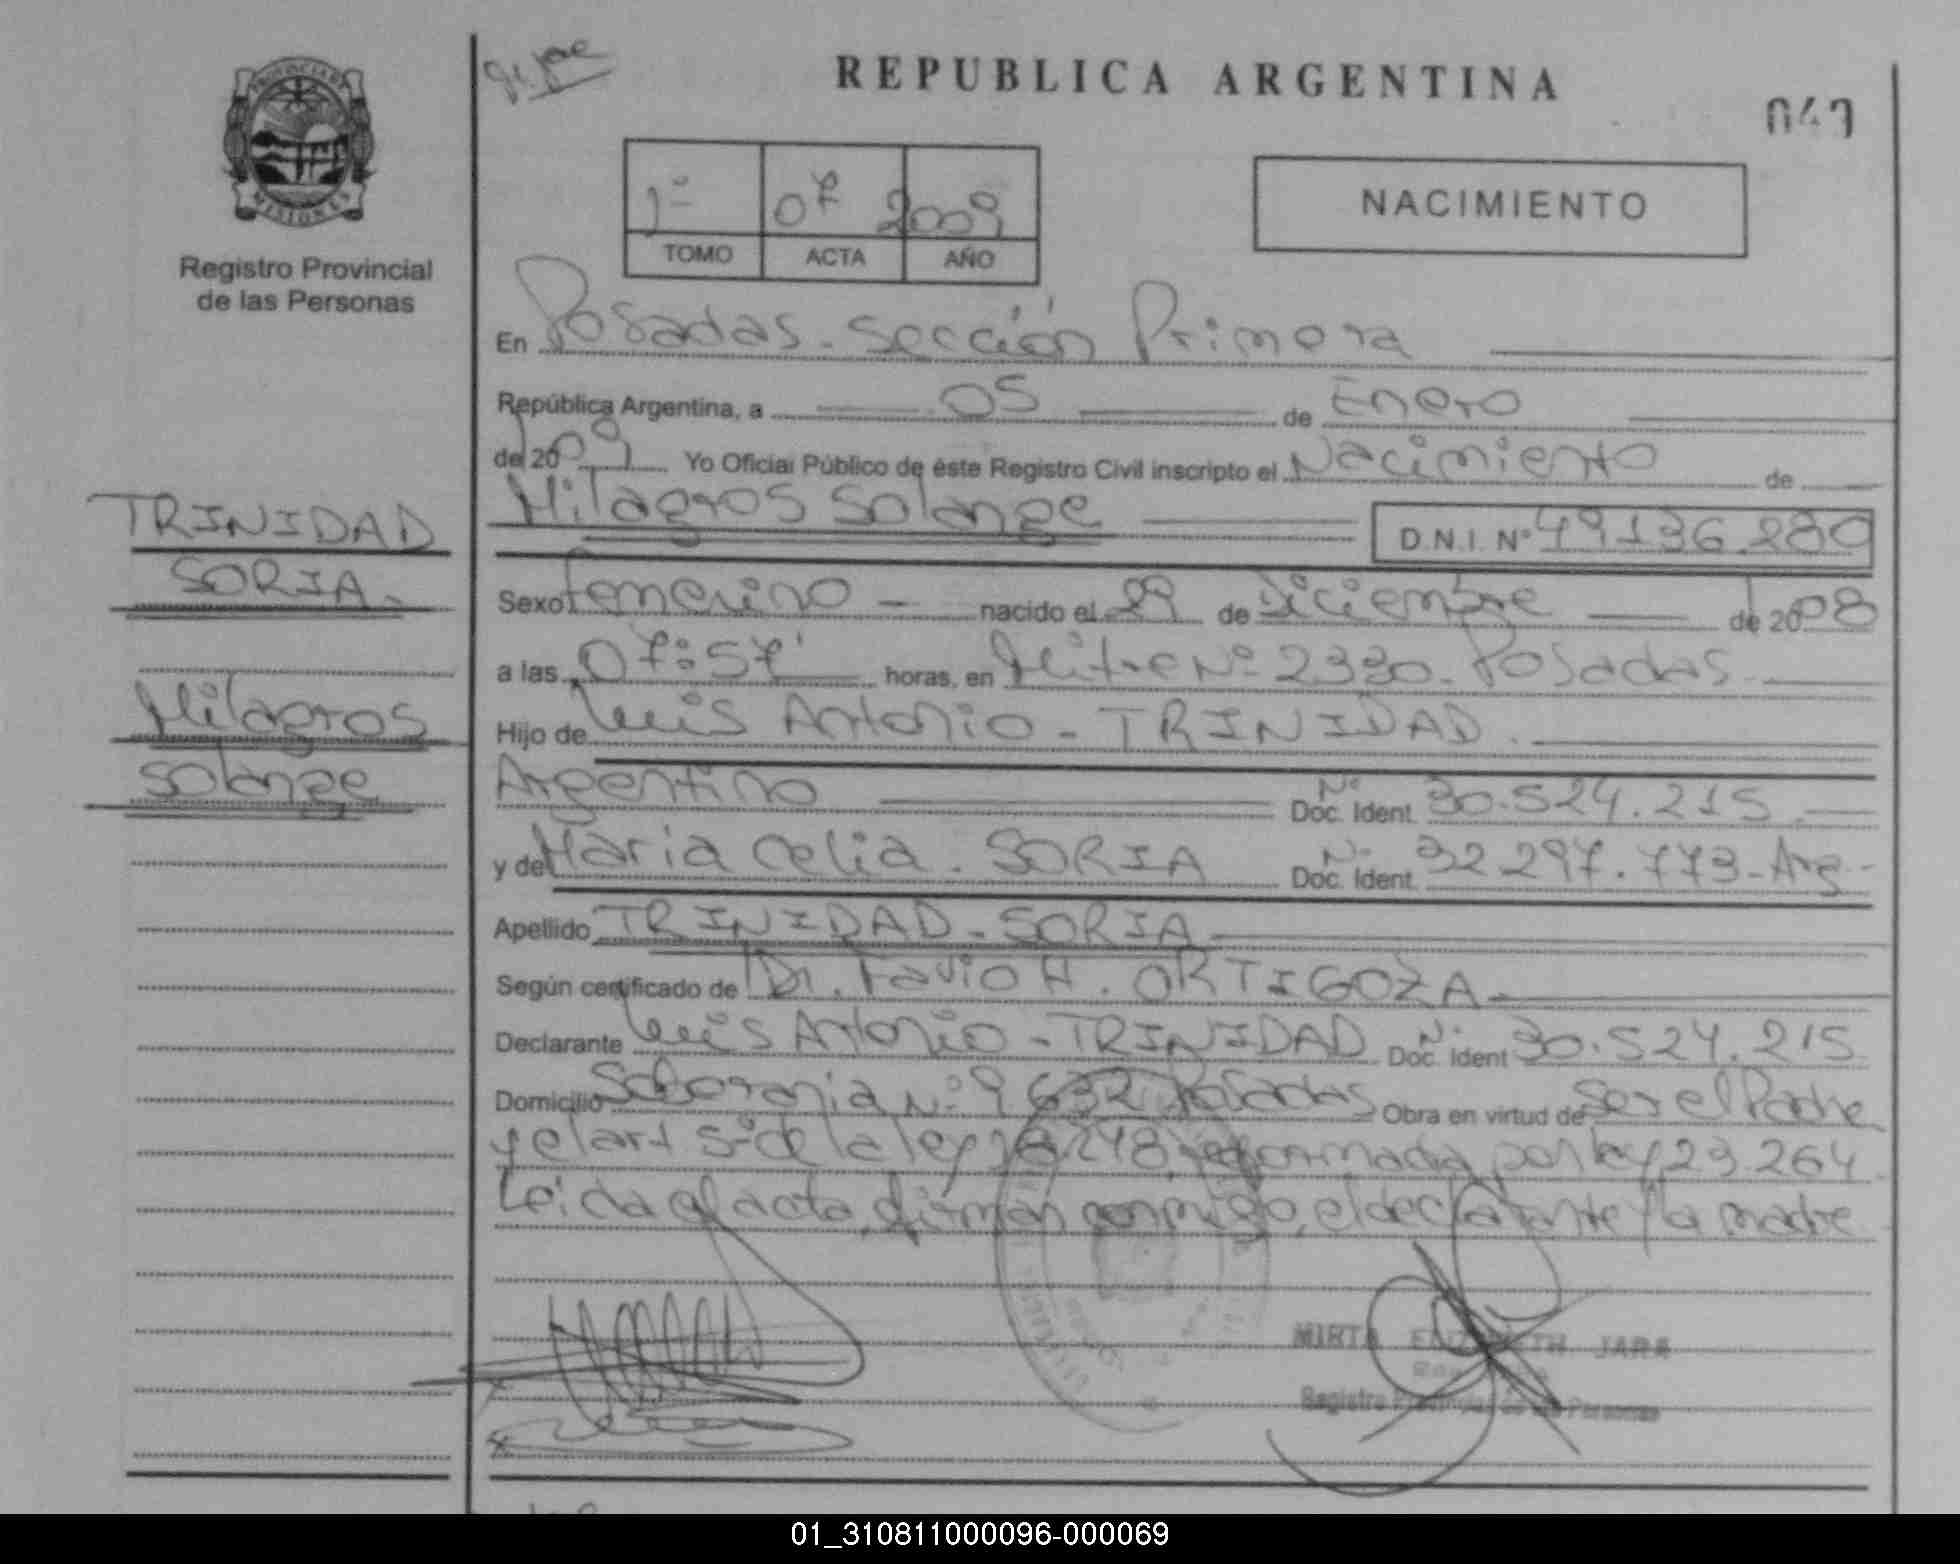 REPUBLICA ARGENTINA
049
PROVINCIA DE
MISIONES
Registro Provincial
de las Personas
1º 07 2009
TOMO ACTA AÑO
NACIMIENTO
En Posadas - Sección Primera
República Argentina, a 05 de Enero
de 2009 Yo Oficial Público de éste Registro Civil inscripto el Nacimiento de
Milagros Solange D.N.I. Nº 49.136.280
TRINIDAD
SORIA.-
Milagros
Solange
Sexo femenino - nacido el 29 de Diciembre de 2008
a las 07:57' horas, en Mitre Nº 2330. Posadas.
Hijo de Luis Antonio - TRINIDAD.
Argentino Doc. Ident. Nº 30.524.215.
y de Maria Celia. SORIA Doc. Ident. Nº 32.297.773-Arg.-
Apellido TRINIDAD - SORIA
Según certificado de Dr. Favio H. ORTIGOZA.
Declarante Luis Antonio - TRINIDAD Doc. Ident Nº 30.524.215
Domicilio Soberania Nº 9632 Posadas Obra en virtud de ser el Padre
y el art 5º de la ley 18.248, reformada por ley 23.264.
Leida el acta, firman conmigo, el declarante y la madre
MIRTA ELIZABETH JARA
Registro Provincial de las Personas
01_310811000096-000069